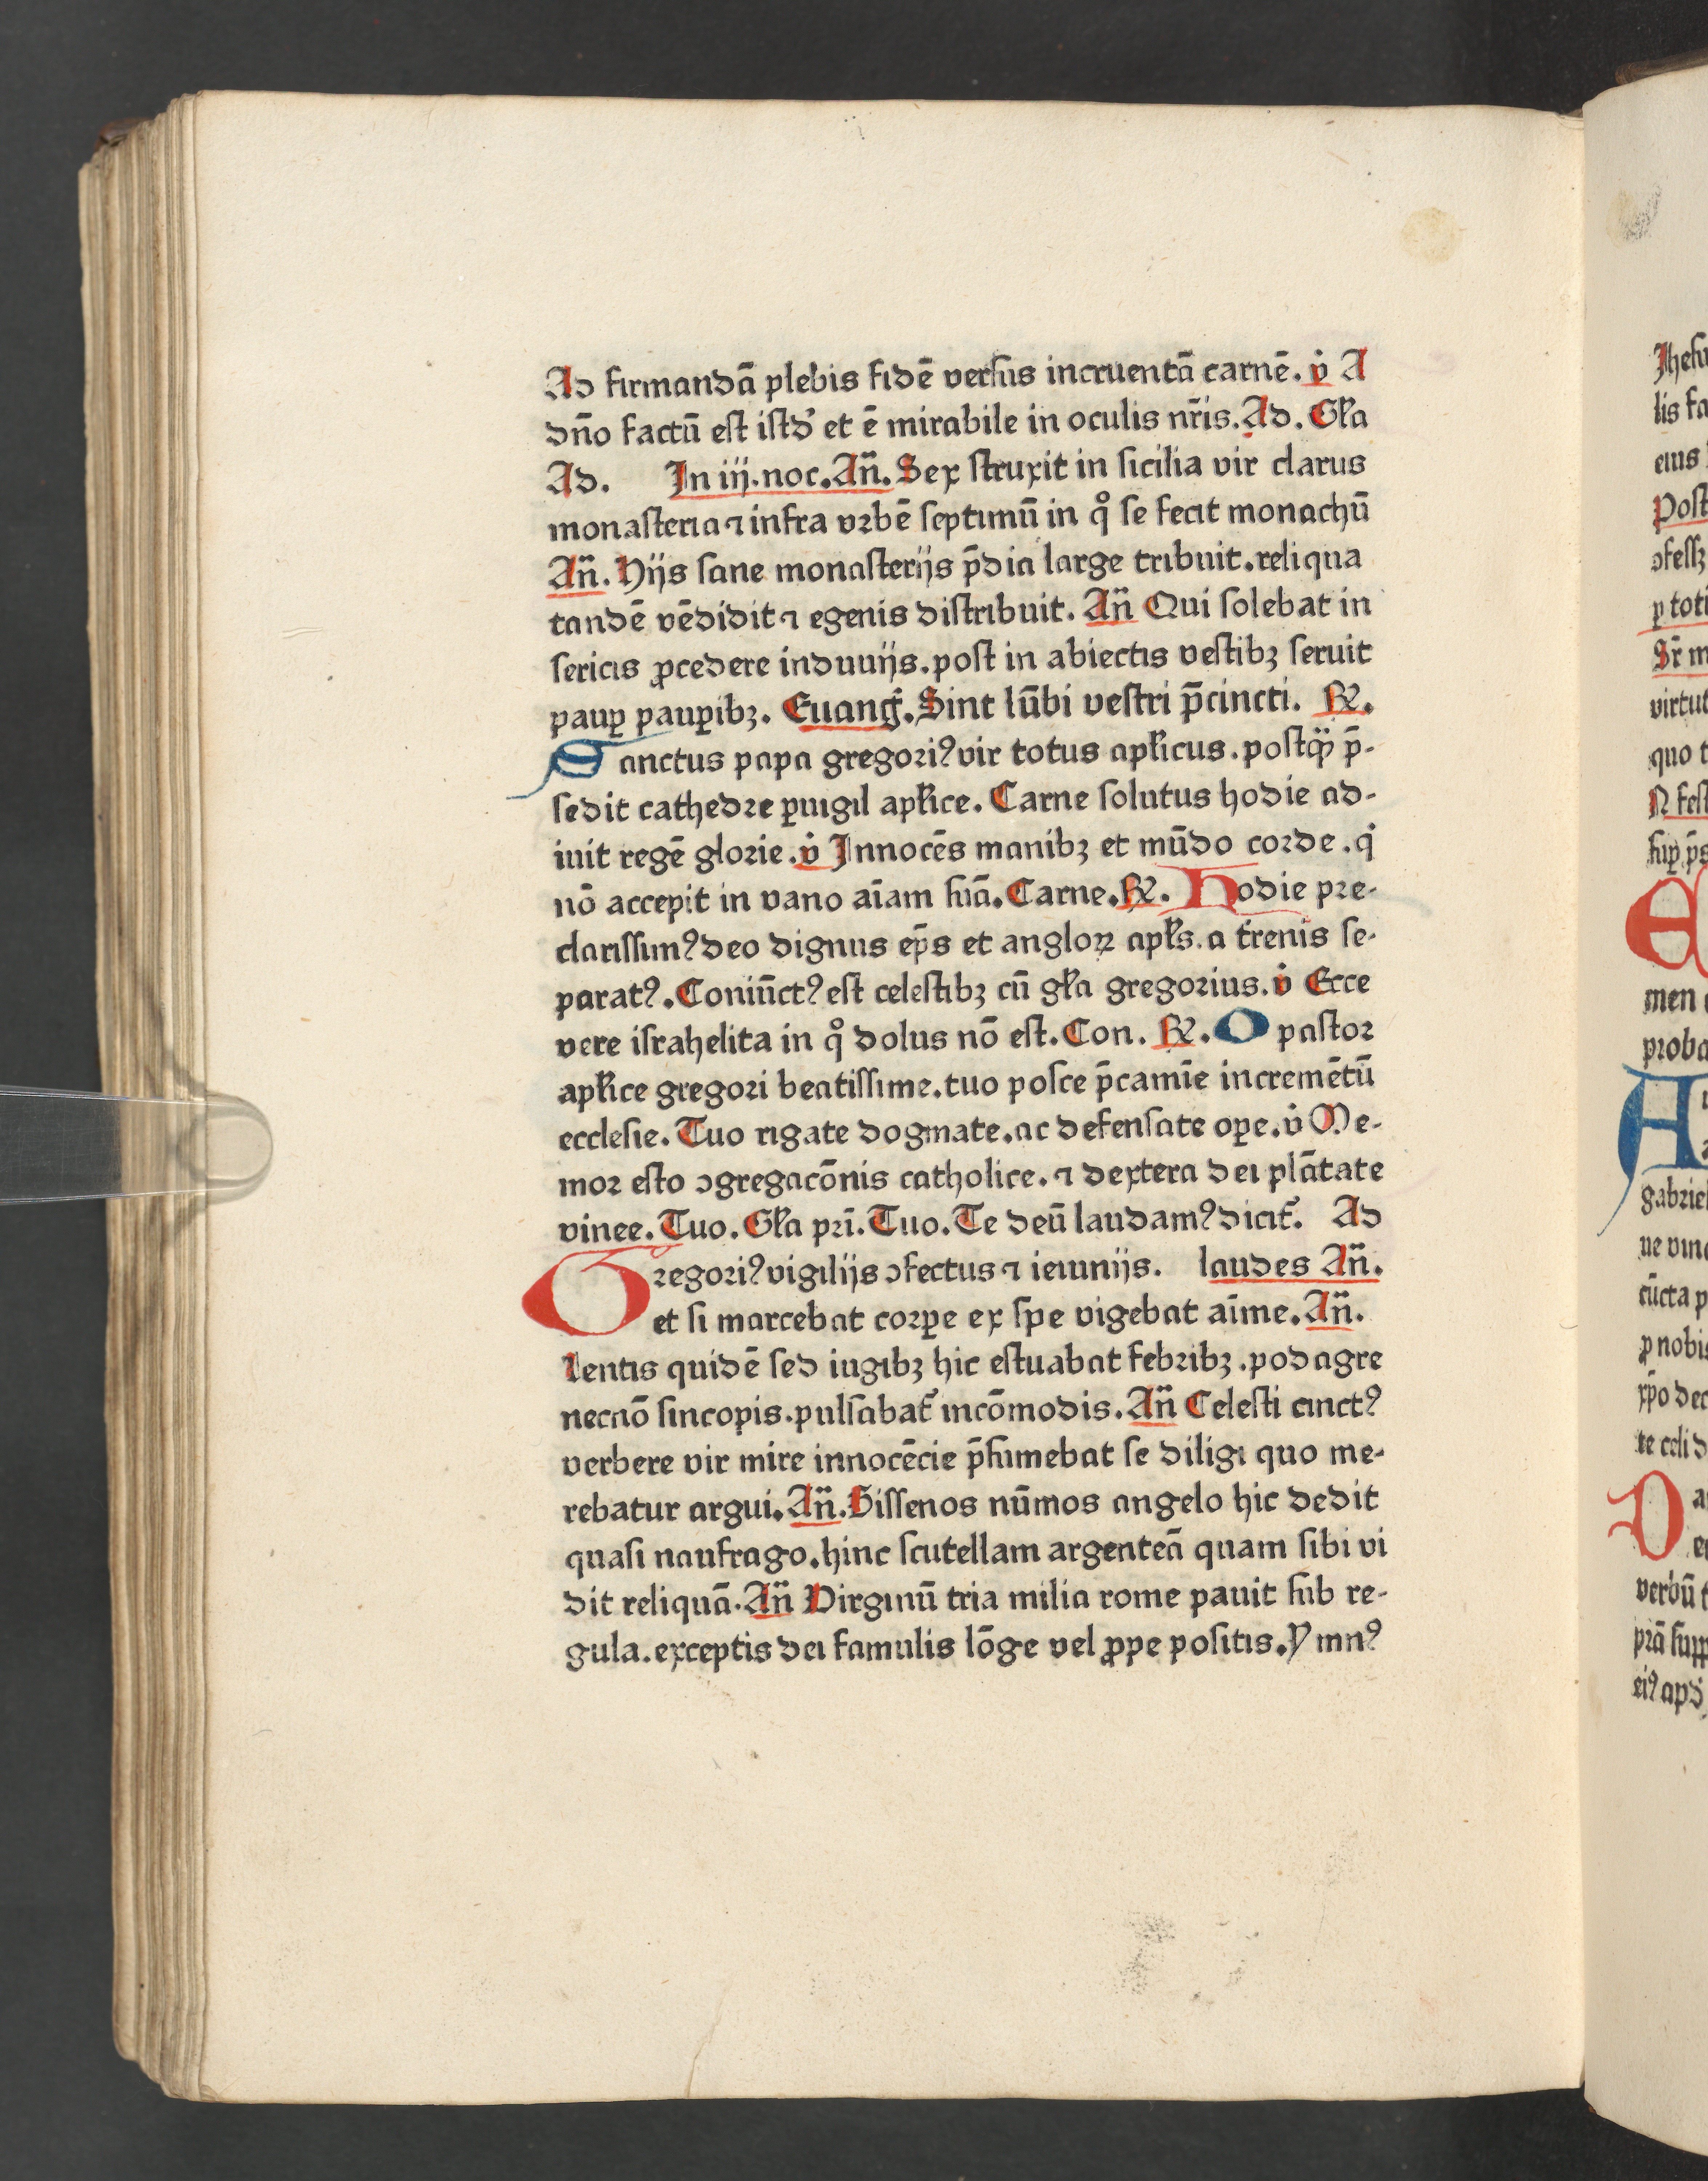 Ad firmandā plebis fidē versus incruentā carnē. v̇ A
dn̄o factū est istd' et ē mirabile in oculis nr̄is. Ad. Gl̄a
Ad. In iij. noc. An̄. Sex struxit in sicilia vir clarus
monasteria ⁊ infra vrbē septimū in qͦ se fecit monachū
An̄. Hijs sane monasterijs p̄dia large tribuit. reliqua
tandē vēdidit ⁊ egenis distribuit. An̄ Qui solebat in
sericis ꝓcedere induuijs. post in abiectis vestibꝫ seruit
paup̲ paup̲ibꝫ. Euanḡ. Sint lūbi vestri p̄cincti. ℞.
Sanctus papa gregoriꝰ vir totus apl̄icus. postꝙ̄ p̄-
sedit cathedre ꝑuigil apl̄ice. Carne solutus hodie ad-
iuit regē glorie. v̇ Innocēs manibꝫ et mūdo corde. qͥ
nō accepit in vano aīam suā. Carne. ℞. Hodie pre-
clarissimꝰ deo dignus ep̄s et anglorꝝ apl̄s. a t̄renis se-
paratꝰ. Coniūctꝰ est celestibꝫ cū gl̄a gregorius. v̇ Ecce
vere israhelita in qͦ dolus nō est. Con. ℞. O pastor
apl̄ice gregori beatissime. tuo posce p̄camīe incremētū
ecclesie. Tuo rigate dogmate. ac defensate oꝑe. v̇ Me-
mor esto ꝯgregacōnis catholice. ⁊ dextera dei plātate
vinee. Tuo. Gl̄a pr̄i. Tuo. Te deū laudamꝰ dicit̄. Ad
Gregoriꝰ vigilijs ꝯfectus ⁊ ieiunijs. laudes An̄.
et si marcebat corꝑe ex spe vigebat aīme. An̄.
Lentis quidē sed iugibꝫ hic estuabat febribꝫ. podagre
necnō sincopis. pulsabat̄ incōmodis. An̄ Celesti cinctꝰ
verbere vir mire innocēcie p̄sumebat se diligi quo me-
rebatur argui. An̄. Bissenos nūmos angelo hic dedit
quasi naufrago. hinc scutellam argenteā quam sibi vi
dit reliquā. An̄ Virginū tria milia rome pauit sub re-
gula. exceptis dei famulis lōge vel ꝓpe positis. Ymnꝰ